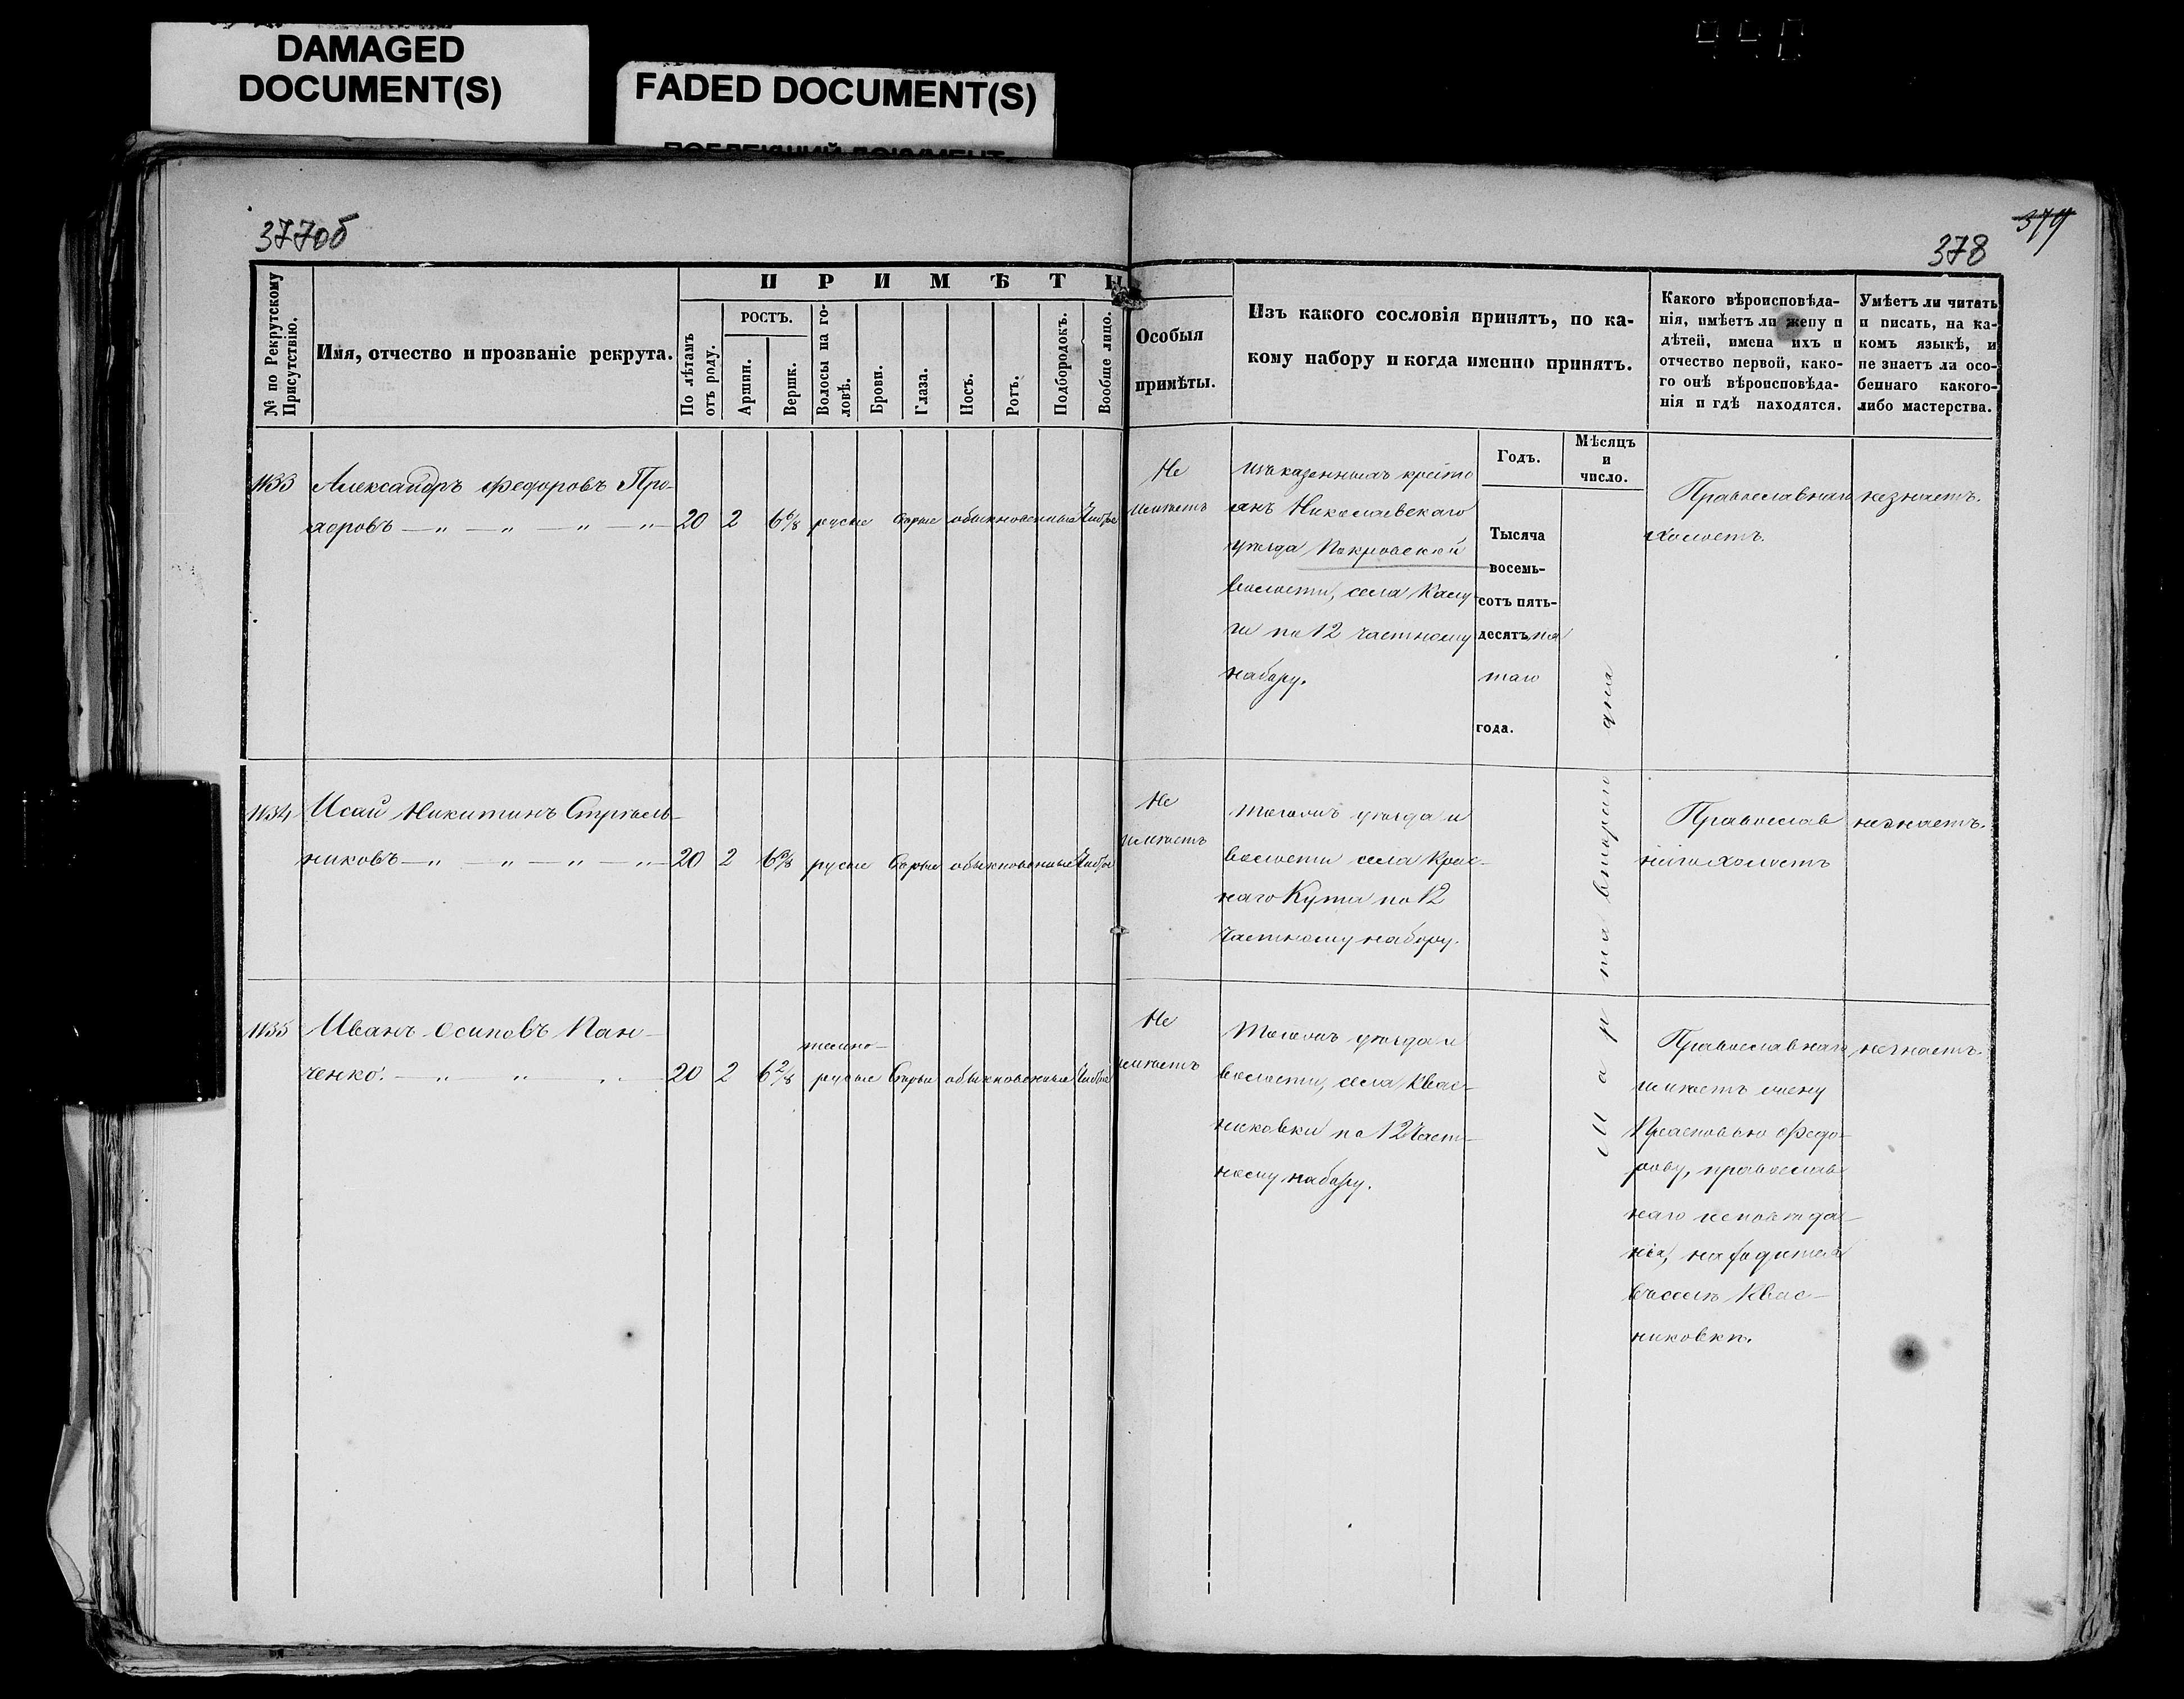 DAMAGED
DOCUMENT(S)
FADED DOCUMENT(S)
377об
379
378
№ по Рекрутскому
Присутствію.
Имя, отчество и прозваніе рекрута.
ПРИМѢТЫ
По лѣтамъ
отъ роду.
РОСТЪ.
Аршин.
Вершк.
Волосы на го-
ловѣ.
Брови.
Глаза.
Носъ.
Ротъ.
Подбородокъ.
Вообще лицо.
Особыя
примѣты.
Изъ какого сословія принятъ, по ка-
кому набору и когда именно принятъ.
Какого вѣроисповѣда-
нія, имѣетъ ли жену и
дѣтей, имена ихъ и
отчество первой, како-
го онѣ вѣроисповѣда-
нія и гдѣ находятся.
Умѣетъ ли читать
и писать, на ка-
комъ языкѣ, и
не знаетъ ли осо-
беннаго какого-
либо мастерства.
Годъ.
Мѣсяцъ
и
число.
1133 Александръ Федоровъ Про-
хоровъ — „ — „ — „ — „ — 20 2 6 6/8 русые Сѣрые обыкновенные Чистое
Не
имѣетъ
изъ казенныхъ крестья
анъ Николаевскаго
уѣзда Покровской
волости, села
по 12 частному
набору.
Тысяча
восемь-
сотъ пять-
десятъ пя
таго
года.
марта втораго дня
Православнаго
холостъ.
незнаетъ.
1134 Исай Никитинъ Стрѣль-
никовъ — „ — „ — „ — „ — 20 2 русые Сѣрые обыкновенные Чистое
Не
имѣетъ
Тогожъ уѣзда и
волости села Крас-
наго Кута по 12
частному набору.
Православ
наго холостъ
незнаетъ.
1135 Иванъ Осиповъ Пан-
ченко. — „ — „ — „ — 20 2 6 2/8 темно-
русые Сѣрые обыкновенные Чистое
Не
имѣетъ
Тогожъ уѣзда и
волости, села Квас-
никовки по 12 част-
ному набору.
Православнаго
имѣетъ жену
Федо-
рову, православ
наго исповѣда-
нія, находится
въ селѣ Квас-
никовки.
незнаетъ.